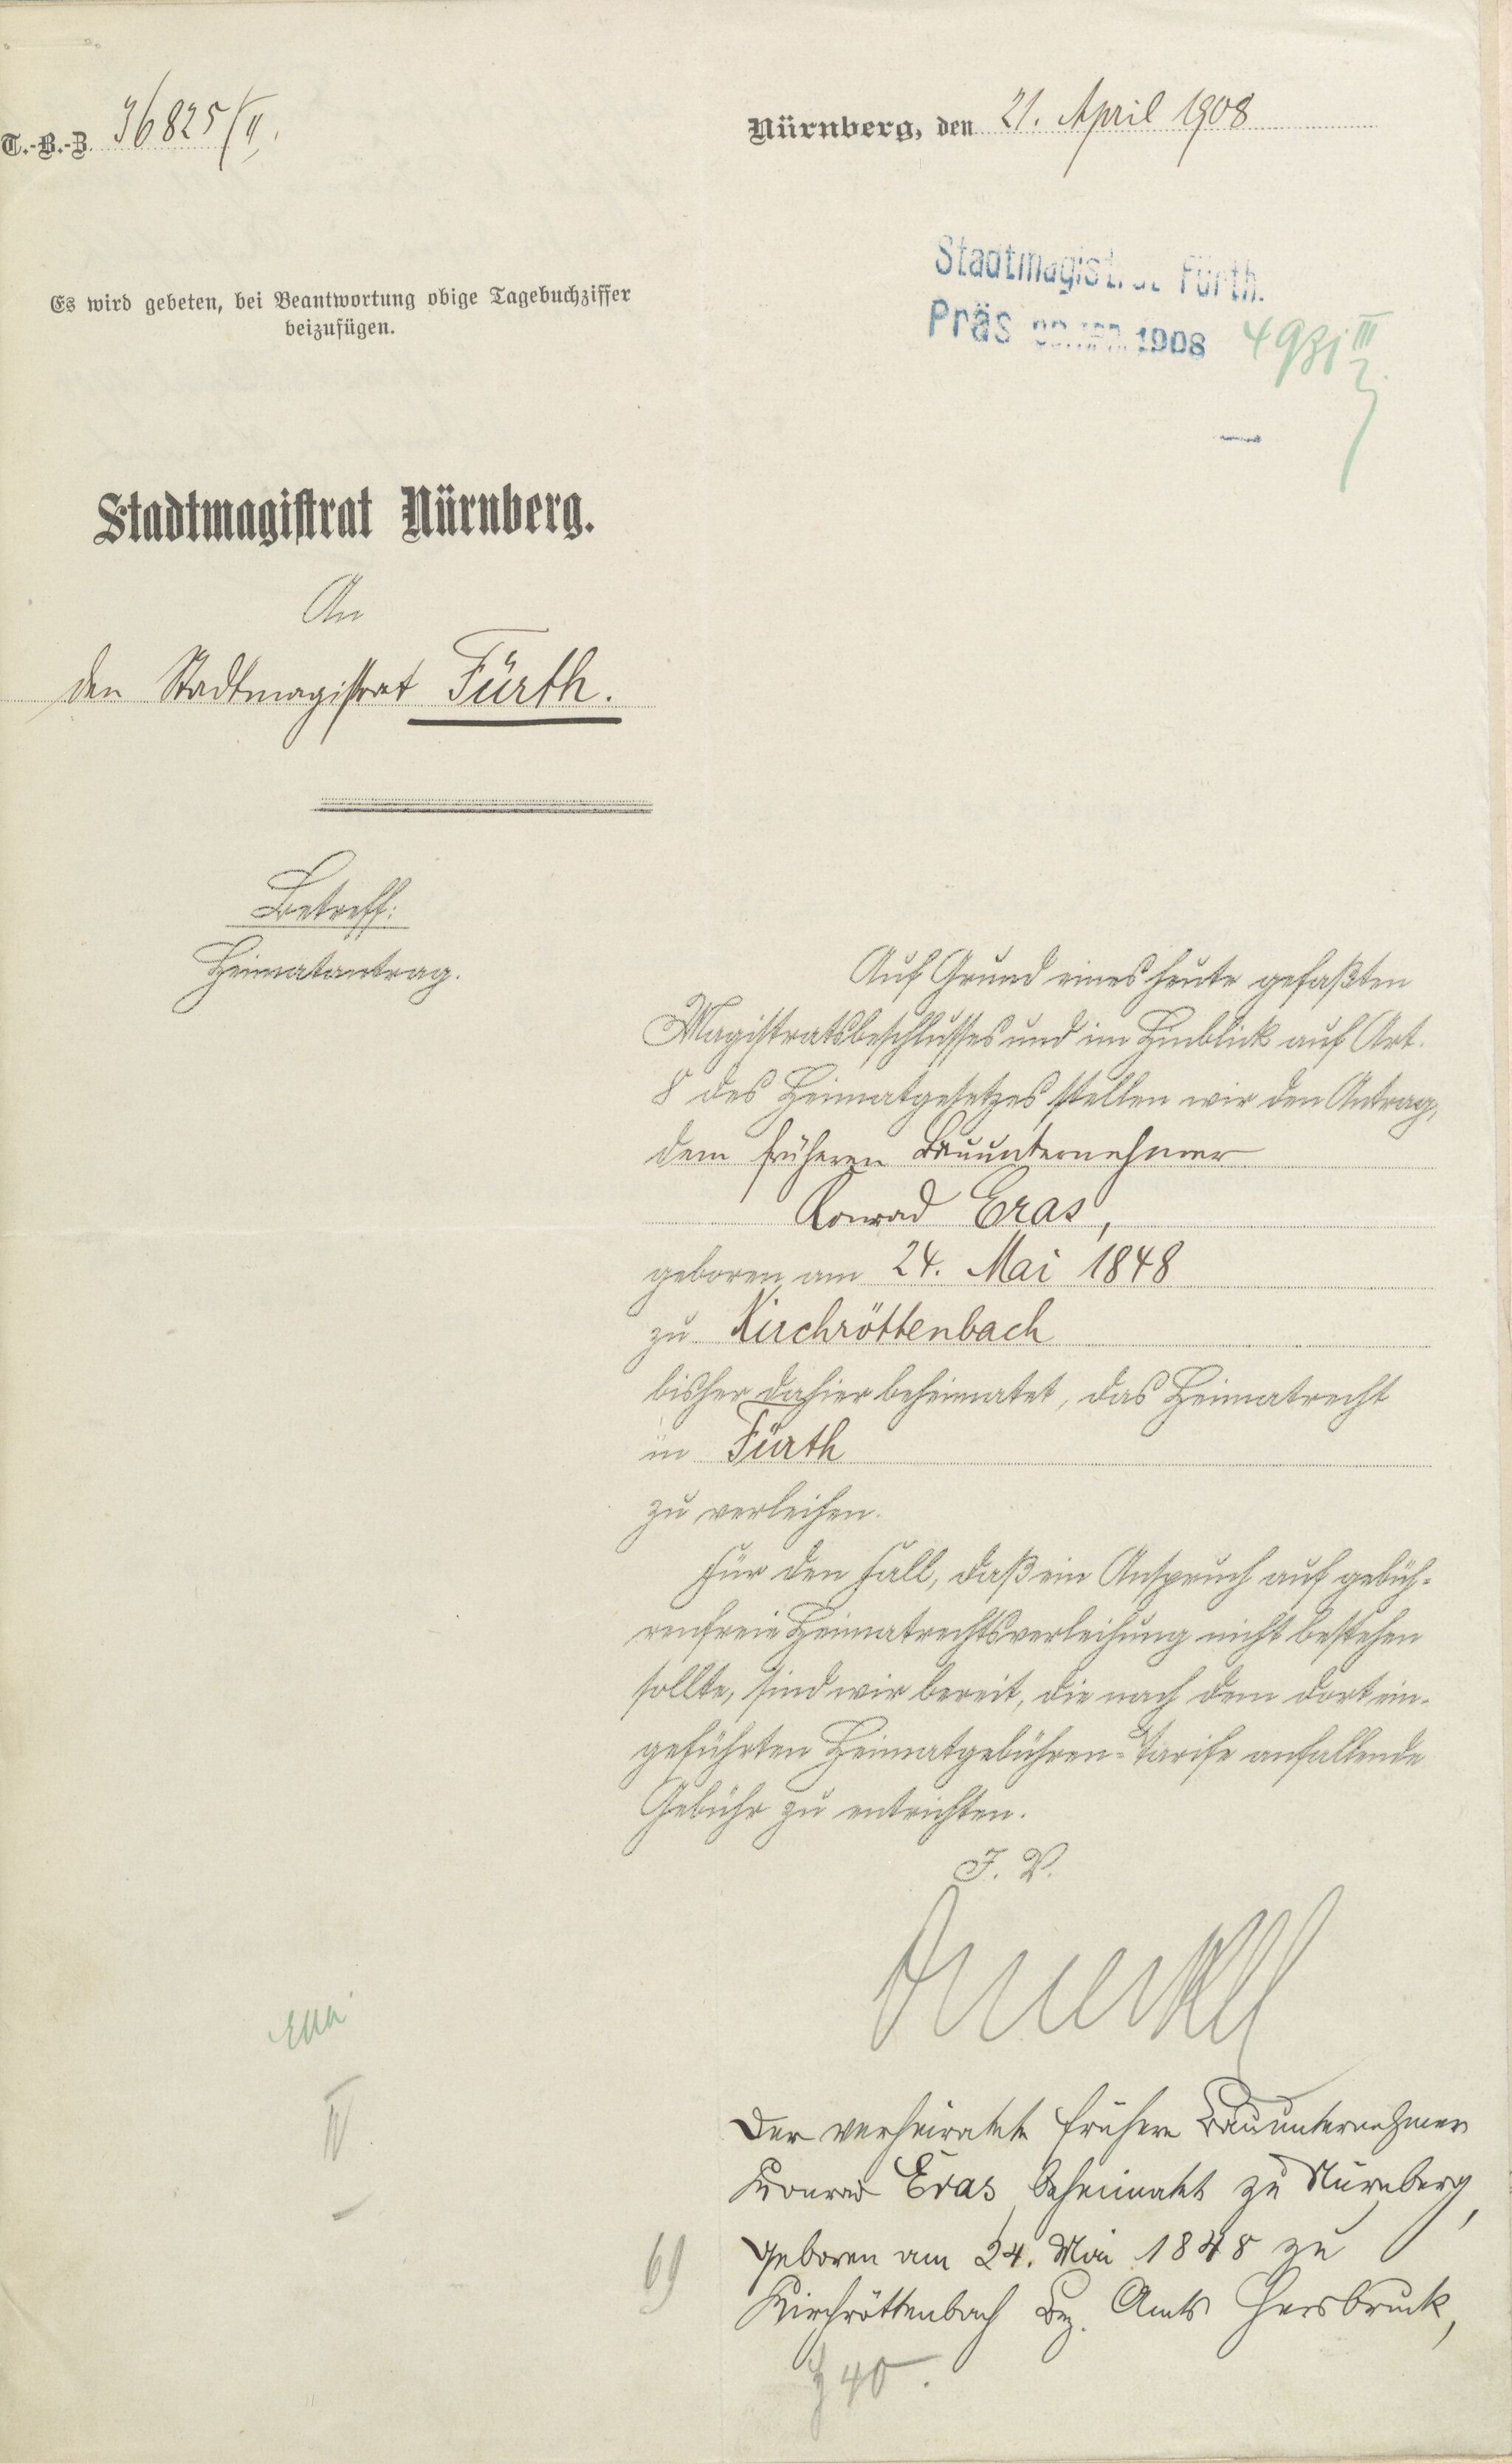 T.-B.-Z. 36825/II.
Nürnberg, den 21. April 1908
Es wird gebeten, bei Beantwortung obige Tagebuchziffer
beizufügen.
Stadtmagistrat Fürth.
Präs 1908
Stadtmagistrat Nürnberg.
An
den Stadtmagistrat Fürth.
Betreff:
Heimatantrag.
Auf Grund eines heute gefaßten
Magistratsbeschlusses und im Hinblick auf Art.
8 des Heimatgesetzes stellen wir den Antrag,
dem früheren Bauunternehmer
Konrad Eras,
geboren am 24. Mai 1848
zu Kirchröttenbach
bisher dahier beheimatet, das Heimatrecht
in Fürth
zu verleihen.
Für den Fall, daß ein Anspruch auf gebüh-
renfreie Heimatrechtsverleihung nicht bestehen
sollte, sind wir bereit, die nach dem dort ein-
geführten Heimatgebühren-Tarife anfallende
Gebühr zu entrichten.
I. V.
IV
Der verheiratete frühere Bauunternehmer
Konrad Eras beheimatet zu Nürnberg,
geboren am 24. Mai 1848 zu
Kirchröttenbach Bez. Amts Hersbruck,